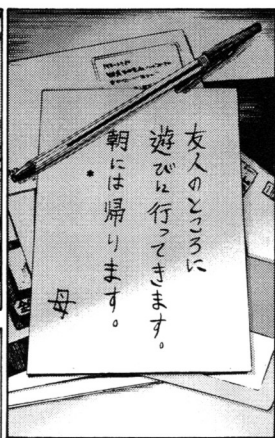 友人のところに
遊びに行ってきます。
朝には帰ります。
母